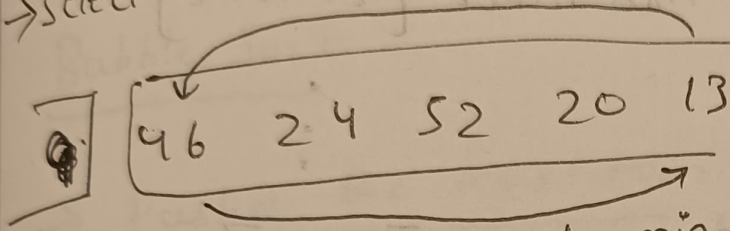 46 24 52 20 13